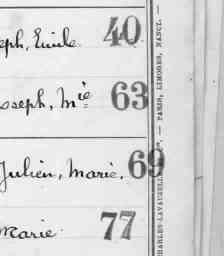 eph, Emile 40
oseph, Mie 63
Julien, Marie. 69
Marie 77
CHARLES-LAVAUZELLE — PARIS, LIMOGES, NANCY. —